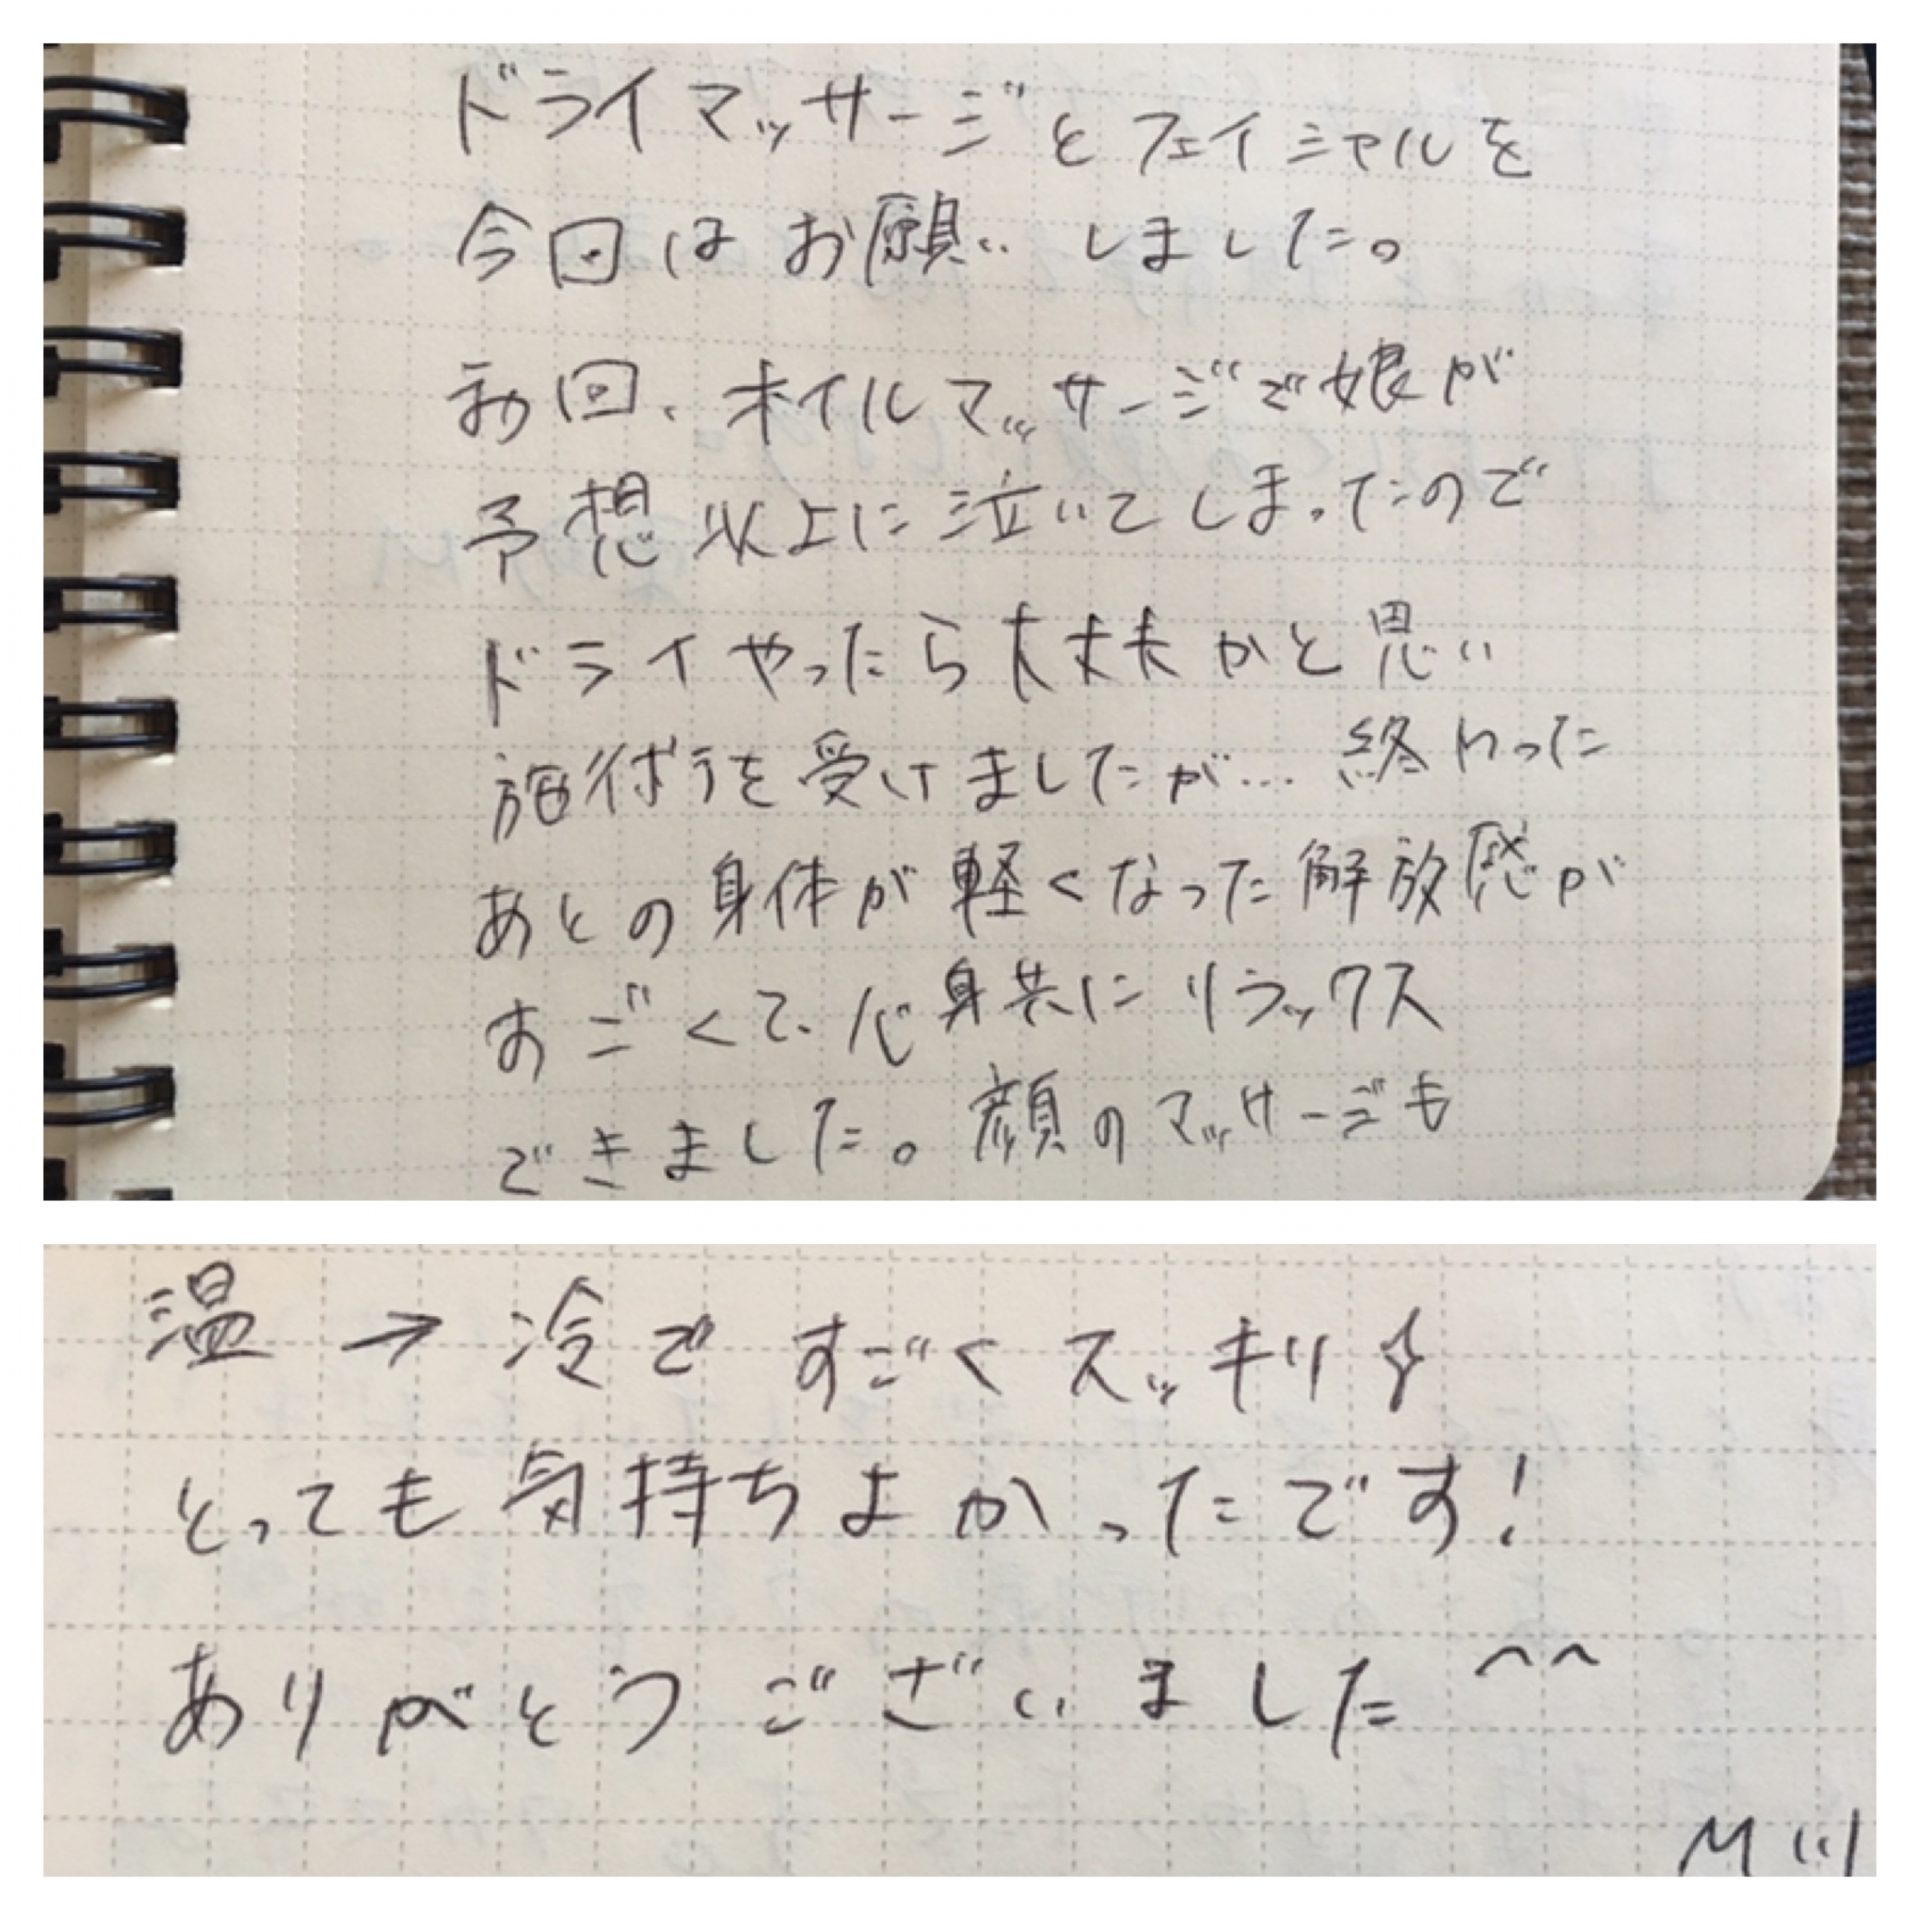 ドライマッサージとフェイシャルを
今回はお願いしました。
初回、オイルマッサージで娘が
予想以上に泣いてしまったので
ドライやったら大丈夫かと思い
施術を受けましたが… 終わった
あとの身体が軽くなった解放感が
すごくて、心身共にリラックス
できました。顔のマッサージも
温→冷ですごくスッキリ✧
とっても気持ちよかったです!
ありがとうございました^^
M川